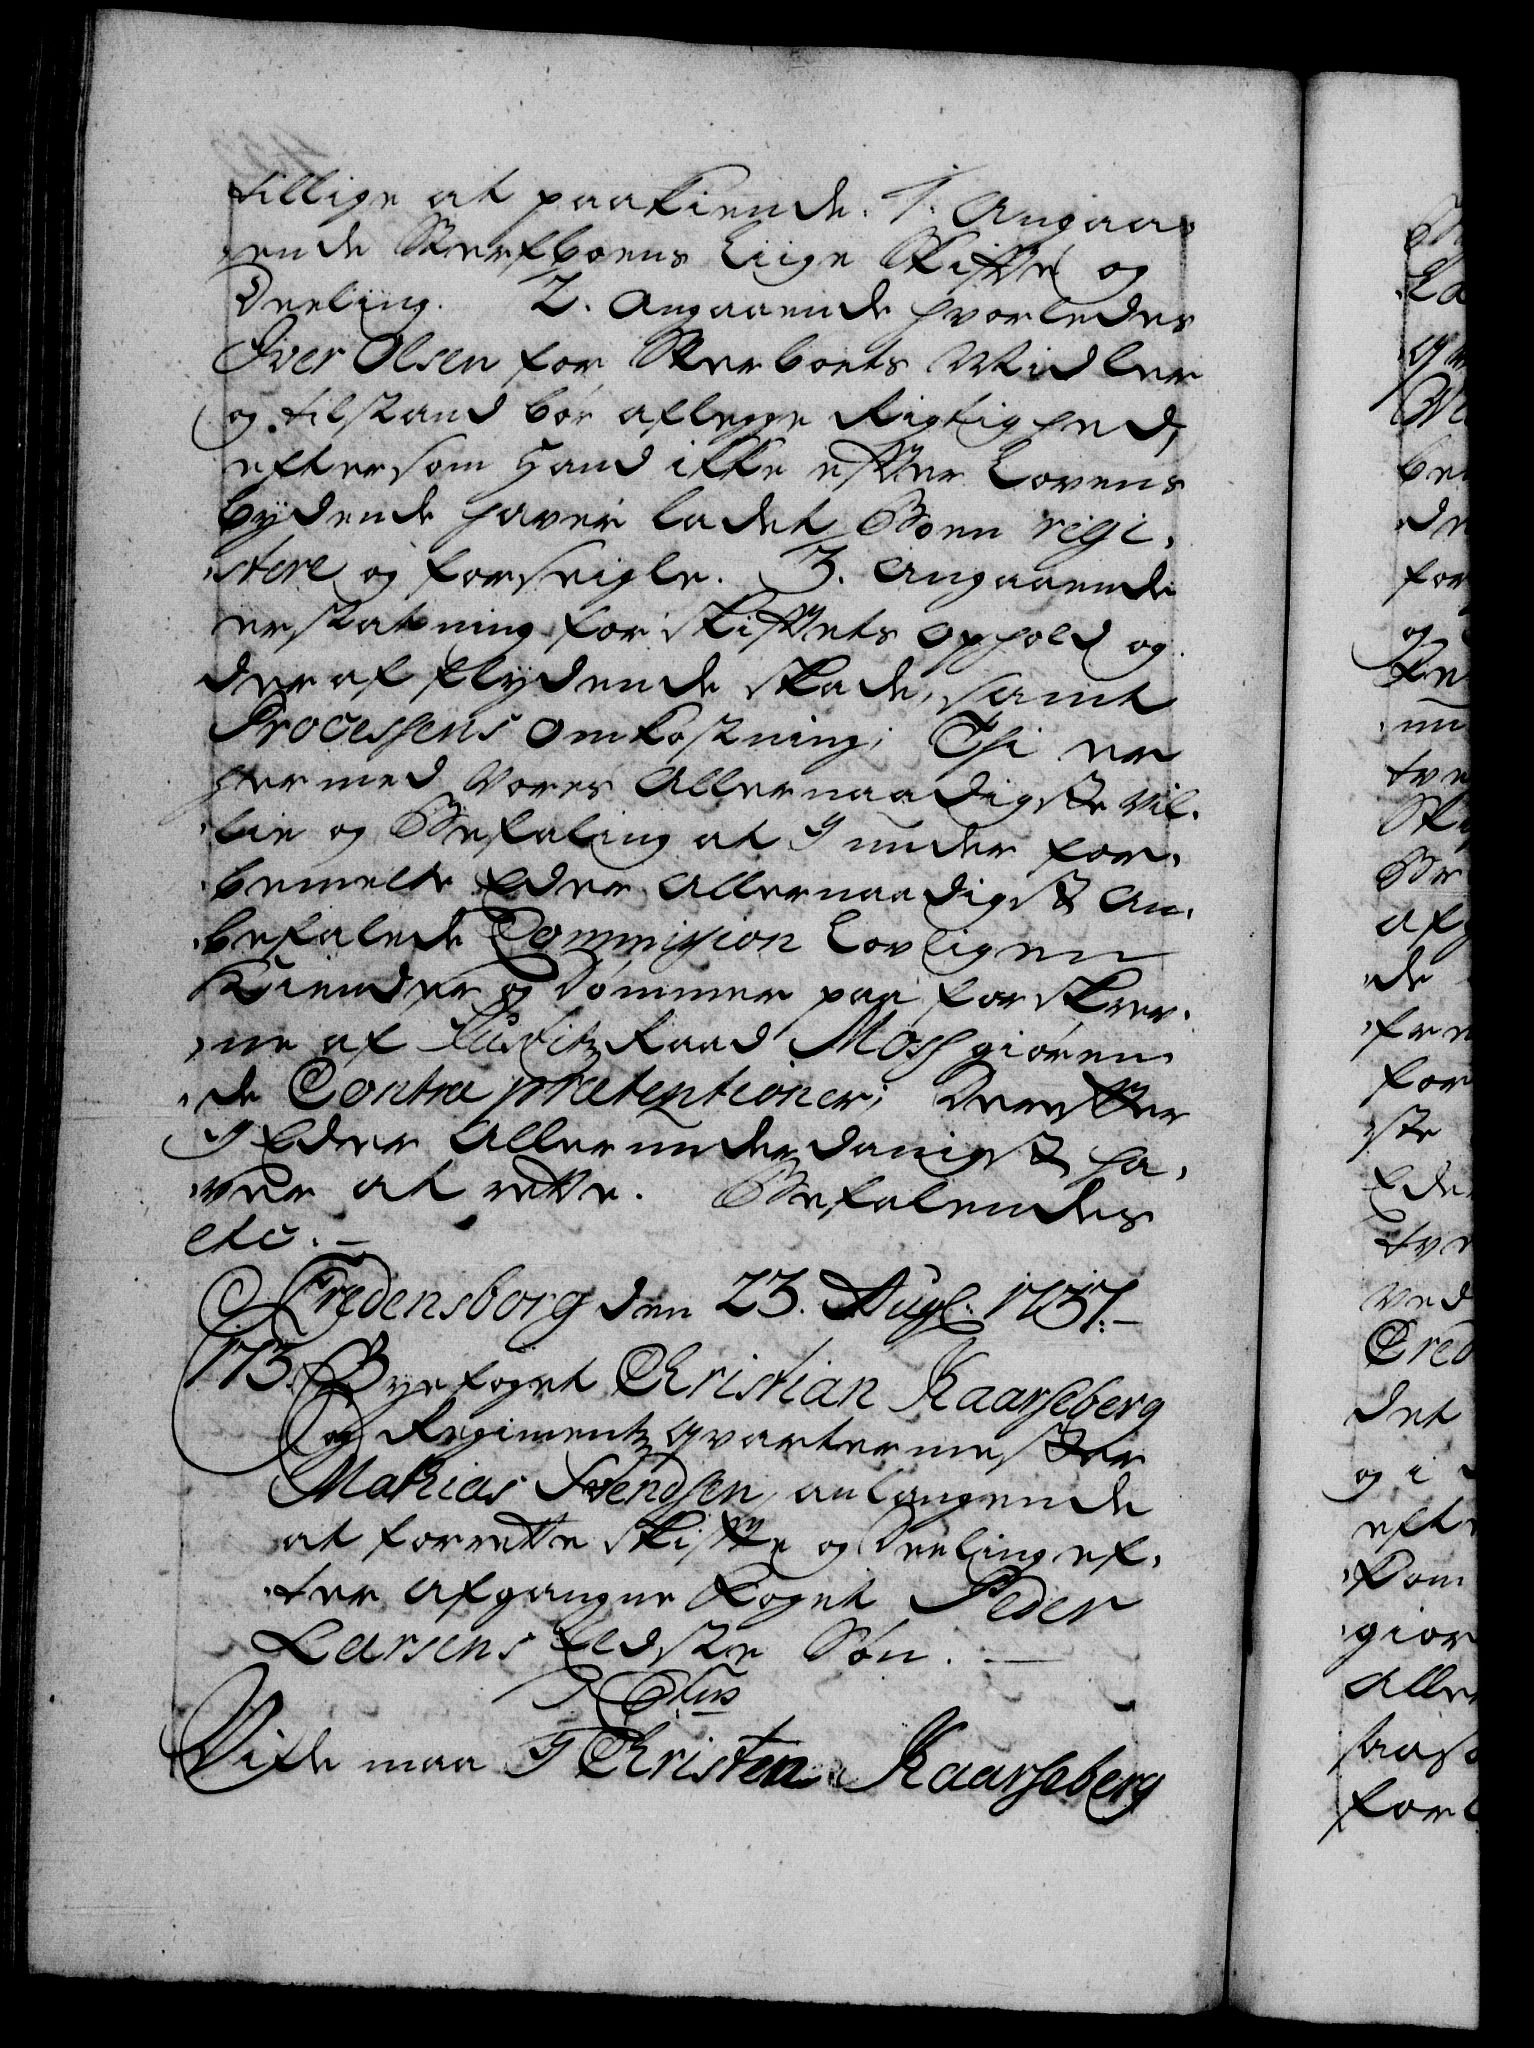 tillige at paakiende. 1. Angaa,
ende Sterfboens Liige Skifte og
Deeling. 2. Angaaende hvorledes
Iver Olsen for Sterboets Midler
og tilstand bør aflegge Rigtighed,
eftersom hand ikke efter Lovens
bydende haver ladet Boen regi,
,stere og forseigle. 3. Angaaende
erstatning for Skiftets Ophold og
deraf flydende skade, samt
Processens Omkostning; Thi er
hermed Vores Allernaadigste Vil,
,lie og Befaling at I under for,
,bemelte Eder Allernaadigst An,
,befalede Commission lovligen
Kiender og dømmer paa forskrev,
,ne af Justitz Raad Moss giøren,
,de Contra prætentioner; Derefter
I Eder Allerunderdanigst ha,
,ver at rette. Befalendes
etc. –
Fredensborg den 23. Aug. 1737. –
173. Byefoget Christian Kaarsberg
og Regimentz qvartermester
Mathias Svendsen, anlangende
at forrette Skifte og Deeling ef,
,ter afgangne Foget Peder
Larsens Eldste Søn. –
C 6tus
Vide maa I Christen Kaarsberg